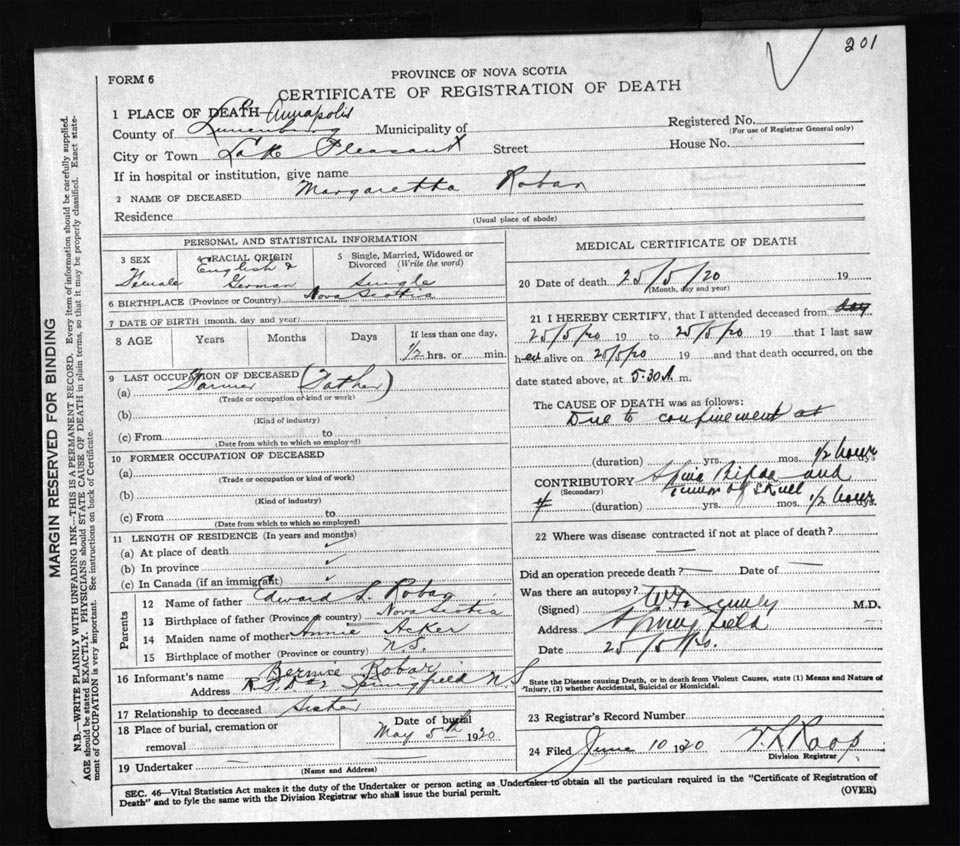 201
FORM 6
PROVINCE OF NOVA SCOTIA
CERTIFICATE OF REGISTRATION OF DEATH
1 PLACE OF DEATH Annapolis
County of Lunenburg Municipality of
Registered No.
(For use of Registrar General only)
City or Town Lake Pleasant Street House No.
If in hospital or institution, give name
2 NAME OF DECEASED Margaretha Robar
Residence
(Usual place of abode)
PERSONAL AND STATISTICAL INFORMATION
3 SEX Female
4 RACIAL ORIGIN English & German
5 Single, Married, Widowed or Divorced (Write the word) Single
6 BIRTHPLACE (Province or Country) Nova Scotia
7 DATE OF BIRTH (month, day and year)
8 AGE Years Months Days If less than one day,
1/2 hrs. or min.
9 LAST OCCUPATION OF DECEASED
(a) Farmer (Father)
(Trade or occupation or kind or work)
(b)
(Kind of industry)
(c) From to
(Date from which to which so employed)
10 FORMER OCCUPATION OF DECEASED
(a)
(Trade or occupation or kind of work)
(b)
(Kind of industry)
(c) From to
(Date from which to which so employed)
11 LENGTH OF RESIDENCE (In years and months)
(a) At place of death ✓
(b) In province ✓
(c) In Canada (if an immigrant) ✓
Parents
12 Name of father Edward L. Robar
13 Birthplace of father (Province or country) Nova Scotia
14 Maiden name of mother Annie Acker
15 Birthplace of mother (Province or country) N.S.
16 Informant's name Bernice Robar
Address R.F.D #2 Springfield N S
17 Relationship to deceased Sister
18 Place of burial, cremation or removal
Date of burial
May 5th 1920
19 Undertaker
(Name and Address)
MEDICAL CERTIFICATE OF DEATH
20 Date of death 25/5/20 19
(Month, day and year)
21 I HEREBY CERTIFY, that I attended deceased from day
25/5/20 19 to 25/5/20 19 that I last saw
h er alive on 25/5/20 19 and that death occurred, on the
date stated above, at 5.30 A. m.
The CAUSE OF DEATH was as follows:
Due to confinement at
(duration) yrs. mos. 1/2 hour dys.
CONTRIBUTORY Spina Bifida and
(Secondary) tumor of skull
# (duration) yrs. mos. 1/2 hour dys.
22 Where was disease contracted if not at place of death?
Did an operation precede death? — Date of —
Was there an autopsy?
(Signed) M.D.
Address Springfield
Date 25/5/20.
State the Disease causing Death, or in death from Violent Causes, state (1) Means and Nature of Injury, (2) whether Accidental, Suicidal or Homicidal.
23 Registrar's Record Number
24 Filed June 10 1920
Division Registrar
SEC. 46—Vital Statistics Act makes it the duty of the Undertaker or person acting as Undertaker to obtain all the particulars required in the "Certificate of Registration of
Death" and to fyle the same with the Division Registrar who shall issue the burial permit.
(OVER)
MARGIN RESERVED FOR BINDING
N.B.—WRITE PLAINLY WITH UNFADING INK—THIS IS A PERMANENT RECORD. Every item of information should be carefully supplied.
AGE should be stated EXACTLY. PHYSICIANS should STATE CAUSE OF DEATH in plain terms, so that it may be properly classified. Exact state-
ment of OCCUPATION is very important. See instructions on back of Certificate.